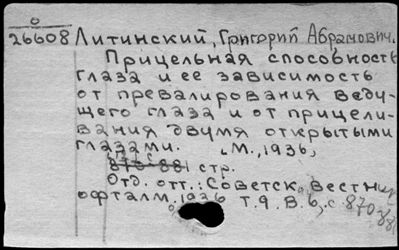 о
26608 Литинский, Григорий Абрамович.
Прицельная способность
глаза и ее зависимость
от превалирования веду-
щего глаза и от прицели-
вания двумя открытыми
глазами. М., 1936,
870-881 стр.
Отд. отт.: Советск. вестник
офталм. 1936 т.9 в.6, с. 870-881